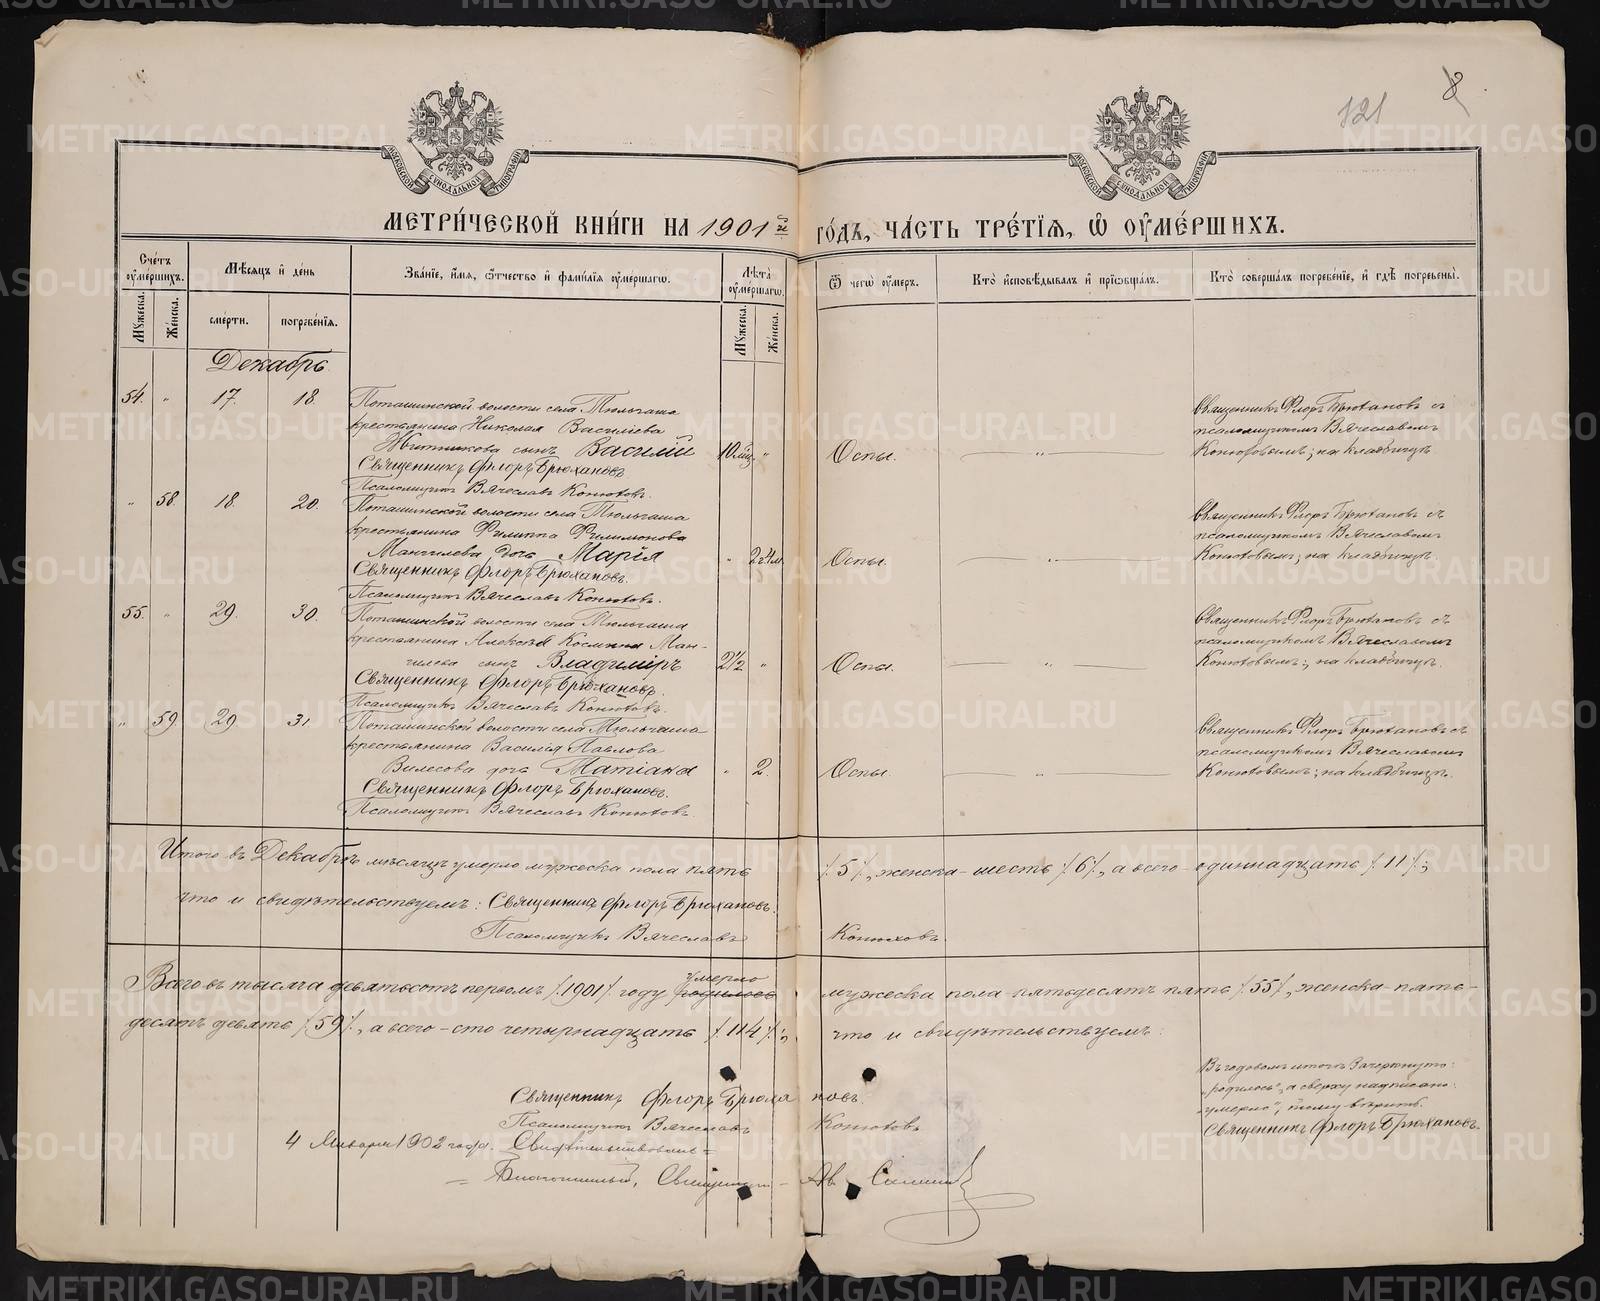 8
121
МОСКОВСКОЙ СѴНОДАЛЬНОЙ ТИПОГРАФІИ
МОСКОВСКОЙ СѴНОДАЛЬНОЙ ТИПОГРАФІИ
МЕТРИ́ЧЕСКОЙ КНИ́ГИ НА 1901й ГО́ДЪ, ЧА́СТЬ ТРЕ́ТЇѦ, Ѡ ОУМЕ́РШИХЪ.
Сче́тъ оумершихъ.
Мꙋжеска.
Же́нска.
Мѣсѧцъ и де́нь
сме́рти.
погребе́нїѧ.
Зва́нїе, и́мѧ, о́тчество и фами́лїѧ оуме́ршагѡ.
Лѣта оуме́ршагѡ.
Мꙋжеска.
Же́нска.
Ѿ чегѡ̀ оу́меръ.
Кто̀ и́сповѣ́дывалъ и прїѡбща́лъ.
Кто̀ соверша́лъ погребе́нїе, и гдѣ̀ погребены̀.
Декабрь
54. " 17. 18.
Поташинской волости села Тюльгаша
крестьянина Николая Васильева
Житникова сынъ Василий 10 мѣс. "
Священникъ Флоръ Брюхановъ
Псаломщикъ Вячеславъ Конюховъ.
Оспы.
Священникъ Флоръ Брюхановъ съ
псаломщикомъ Вячеславомъ
Конюховымъ; на кладбищѣ
" 58. 18. 20.
Поташинской волости села Тюльгаша
крестьянина Филиппа Филимонова
Мангилева дочь Марія " 2г.4м.
Священникъ Флоръ Брюхановъ.
Псаломщикъ Вячеславъ Конюховъ.
Оспы.
Священникъ Флоръ Брюхановъ съ
псаломщикомъ Вячеславомъ
Конюховымъ; на кладбищѣ.
55. " 29. 30.
Поташинской волости села Тюльгаша
крестьянина Алексѣя Космина Ман-
гилева сынъ Владиміръ 2½ "
Священникъ Флоръ Брюхановъ.
Псаломщикъ Вячеславъ Конюховъ.
Оспы.
Священникъ Флоръ Брюхановъ съ
псаломщикомъ Вячеславомъ
Конюховымъ; на кладбищѣ.
" 59. 29 31.
Поташинской волости села Тюльгаша
крестьянина Василія Павлова
Вилесова дочь Татіана " 2.
Священникъ Флоръ Брюхановъ.
Псаломщикъ Вячеславъ Конюховъ.
Оспы.
Священникъ Флоръ Брюхановъ съ
псаломщикомъ Вячеславомъ
Конюховымъ; на кладбищѣ.
Итого въ Декабрѣ мѣсяцѣ умерло мужеска пола пять /.5/., женска - шесть /.6/., а всего - одиннадцать /.11/.;
что и свидѣтельствуемъ: Священникъ Флоръ Брюхановъ.
Псаломщикъ Вячеславъ Конюховъ.
умерло
Всего въ тысяча девятьсотъ первомъ /.1901/. году родилось мужеска пола пятьдесятъ пять /.55/., женска - пять-
десятъ девять /.59/., а всего - сто четырнадцать /.114/.; что и свидѣтельствуемъ:
Священникъ Флоръ Брюхановъ.
Псаломщикъ Вячеславъ Конюховъ
4 Января 1902 года. Свидѣтельствовалъ =
= Благочинный, Священникъ -
Въ годовомъ итогѣ зачеркнуто:
„родилось", а сверху надписано:
„умерло", тому вѣрить.
Священникъ Флоръ Брюхановъ.
METRIKI.GASO-URAL.RU